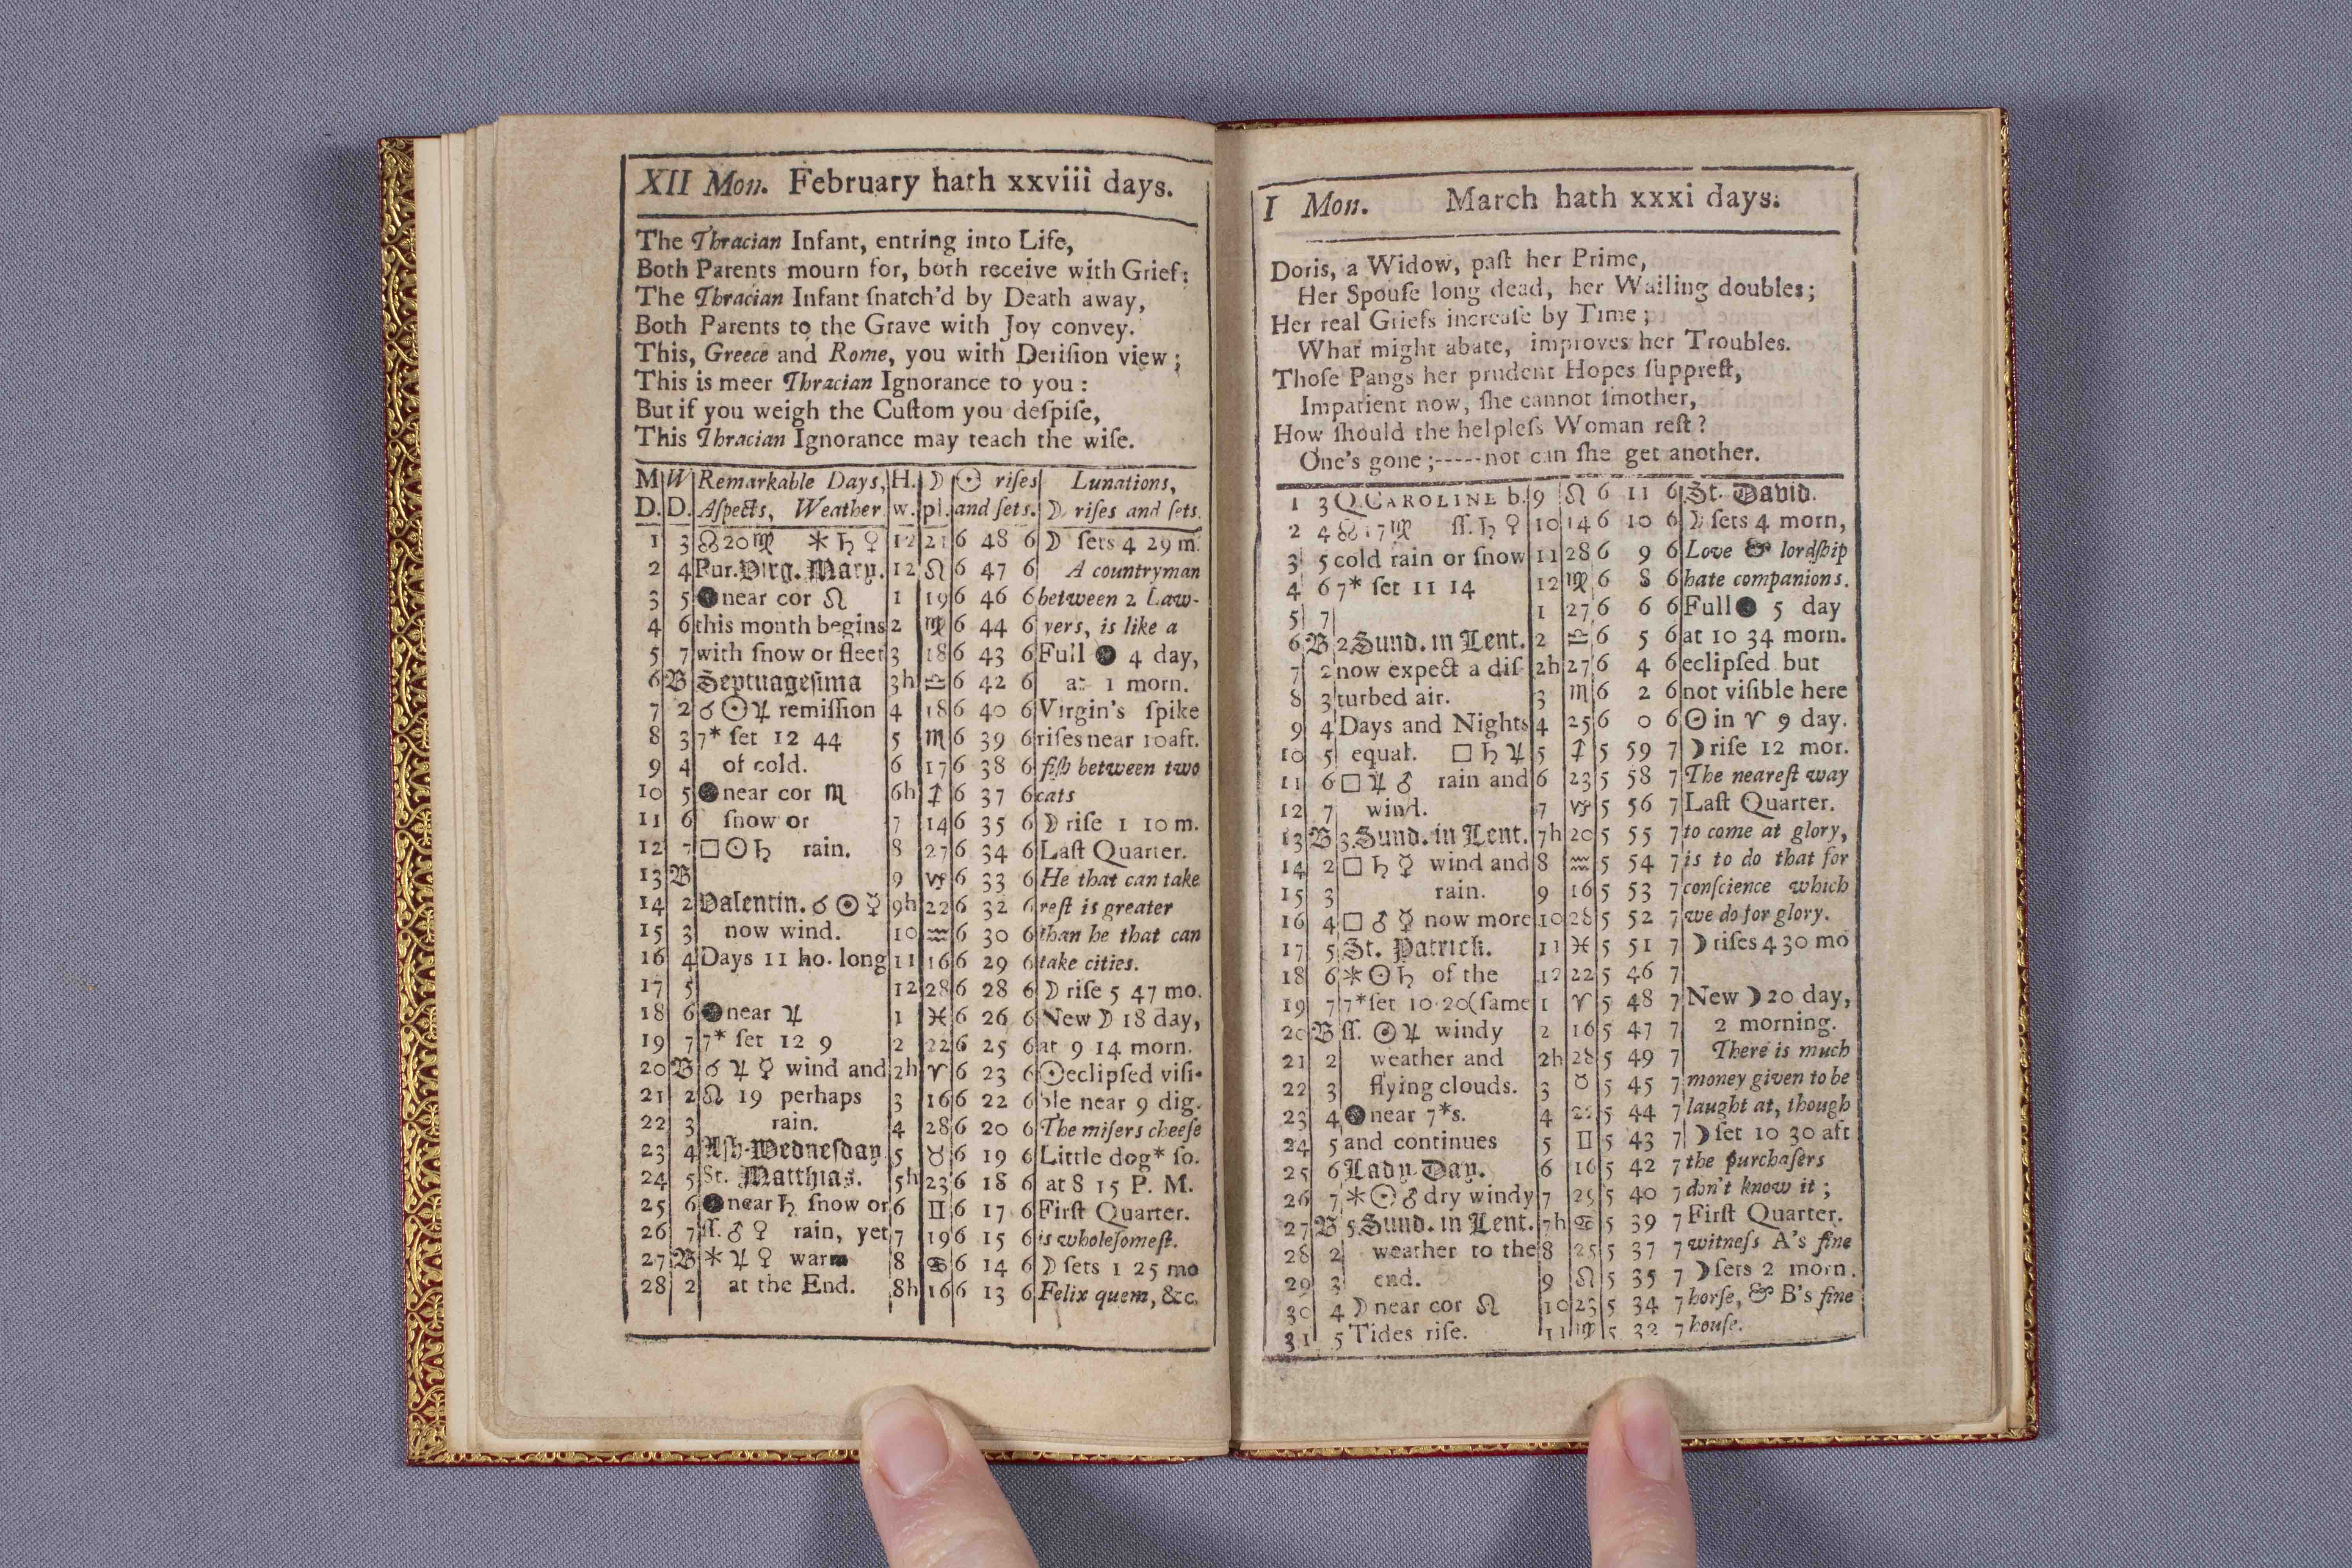 XII Mon. February hath xxviii days.
The Thracian Infant, entring into Life,
Both Parents mourn for, both receive with Grief:
The Thracian Infant ſnatch'd by Death away,
Both Parents to the Grave with Joy convey.
This, Greece and Rome, you with Deriſion view;
This is meer Thracian Ignorance to you:
But if you weigh the Cuſtom you deſpiſe,
This Thracian Ignorance may teach the wiſe.
M W Remarkable Days, H. ☽ ☉ riſes Lunations,
D. D. Aſpects, Weather w. pl. and ſets. ☽ riſes and ſets.
1 3 ☊ 20 ♍ ⚹ ♄ ♀ 12 21 6 48 6 ☽ ſets 4 29 m.
2 4 Pur. Virg. Mary. 12 ♌ 6 47 6 A countryman
3 5 ● near cor ♌ 1 19 6 46 6 between 2 Law-
4 6 this month begins 2 ♍ 6 44 6 yers, is like a
5 7 with ſnow or ſleet 3 18 6 43 6 Full ● 4 day,
6 B Septuageſima 3h ♎ 6 42 6 at 1 morn.
7 2 ☌ ☉ ♃ remiſſion 4 18 6 40 6 Virgin's ſpike
8 3 7* ſet 12 44 5 ♏ 6 39 6 riſes near 10 aft.
9 4 of cold. 6 17 6 38 6 fiſh between two
10 5 ● near cor ♏ 6h ♐ 6 37 6 cats
11 6 ſnow or 7 14 6 35 6 ☽ riſe 1 10 m.
12 7 □ ☉ ♄ rain. 8 27 6 34 6 Laſt Quarter.
13 B 9 ♑ 6 33 6 He that can take
14 2 Valentin. ☌ ☉ ☿ 9h 22 6 32 6 reſt is greater
15 3 now wind. 10 ♒ 6 30 6 than he that can
16 4 Days 11 ho. long 11 16 6 29 6 take cities.
17 5 12 28 6 28 6 ☽ riſe 5 47 mo.
18 6 ● near ♃ 1 ♓ 6 26 6 New ☽ 18 day,
19 7 7* ſet 12 9 2 22 6 25 6 at 9 14 morn.
20 B ☌ ♃ ☿ wind and 2h ♈ 6 23 6 ☉ eclipſed viſi-
21 2 ☊ 19 perhaps 3 16 6 22 6 ble near 9 dig.
22 3 rain. 4 28 6 20 6 The miſers cheeſe
23 4 Aſh-Wedneſday 5 ♉ 6 19 6 Little dog* ſo.
24 5 St. Matthias. 5h 23 6 18 6 at 8 15 P. M.
25 6 ● near ♄ ſnow or 6 ♊ 6 17 6 Firſt Quarter.
26 7 ſſ. ♂ ♀ rain, yet 7 19 6 15 6 is wholeſomeſt.
27 B ⚹ ♃ ♀ warm 8 ♋ 6 14 6 ☽ ſets 1 25 mo
28 2 at the End. 8h 16 6 13 6 Felix quem, &c.
I Mon. March hath xxxi days.
Doris, a Widow, paſt her Prime,
Her Spouſe long dead, her Wailing doubles;
Her real Griefs increaſe by Time;
What might abate, improves her Troubles.
Thoſe Pangs her prudent Hopes ſuppreſt,
Impatient now, ſhe cannot ſmother,
How ſhould the helpleſs Woman reſt?
One's gone;-----not can ſhe get another.
1 3 Q. CAROLINE b. 9 ♌ 6 11 6 St. David.
2 4 ☊ 17 ♍ ſſ. ♄ ♀ 10 14 6 10 6 ☽ ſets 4 morn,
3 5 cold rain or ſnow 11 28 6 9 6 Love & lordſhip
4 6 7* ſet 11 14 12 ♍ 6 8 6 hate companions.
5 7 1 27 6 6 6 Full ● 5 day
6 B 2 Sund. in Lent. 2 ♎ 6 5 6 at 10 34 morn.
7 2 now expect a diſ- 2h 27 6 4 6 eclipſed but
8 3 turbed air. 3 ♏ 6 2 6 not viſible here
9 4 Days and Nights 4 25 6 0 6 ☉ in ♈ 9 day.
10 5 equal. □ ♄ ♃ 5 ♐ 5 59 7 ☽ riſe 12 mor.
11 6 □ ♃ ♂ rain and 6 23 5 58 7 The neareſt way
12 7 wind. 7 ♑ 5 56 7 Laſt Quarter.
13 B 3 Sund. in Lent. 7h 20 5 55 7 to come at glory,
14 2 □ ♄ ☿ wind and 8 ♒ 5 54 7 is to do that for
15 3 rain. 9 16 5 53 7 conſcience which
16 4 □ ♂ ☿ now more 10 28 5 52 7 we do for glory.
17 5 St. Patrick. 11 ♓ 5 51 7 ☽ riſes 4 30 mo
18 6 ⚹ ☉ ♄ of the 12 22 5 46 7
19 7 7* ſet 10 20 (ſame 1 ♈ 5 48 7 New ☽ 20 day,
20 B ſſ. ☉ ♃ windy 2 16 5 47 7 2 morning.
21 2 weather and 2h 28 5 49 7 There is much
22 3 flying clouds. 3 ♉ 5 45 7 money given to be
23 4 ● near 7*s. 4 22 5 44 7 laught at, though
24 5 and continues 5 ♊ 5 43 7 ☽ ſet 10 30 aft
25 6 Lady Day. 6 16 5 42 7 the purchaſers
26 7 ⚹ ☉ ♂ dry windy 7 29 5 40 7 don't know it;
27 B 5 Sund. in Lent. 7h ♋ 5 39 7 Firſt Quarter.
28 2 weather to the 8 25 5 37 7 witneſs A's fine
29 3 end. 9 ♌ 5 35 7 ☽ ſets 2 morn.
30 4 ☽ near cor ♌ 10 23 5 34 7 horſe, & B's fine
31 5 Tides riſe. 11 ♍ 5 32 7 houſe.